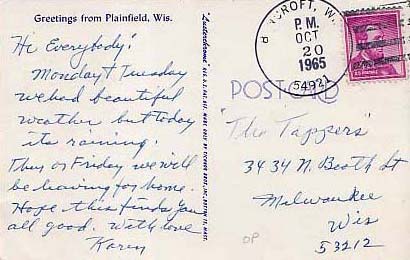 Greetings from Plainfield, Wis.
Hi Everybody!
Monday & Tuesday
we had beautiful
weather but today
its raining.
Thurs or Friday we will
be leaving for home.
Hope this finds you
all good. With love
Karen
"Lusterchrome"
CROFT, W
P.M.
OCT
20
1965
54921
POSTCARD
"The Tappers"
3434 N. Booth St
Milwaukee
Wis
53212
OP